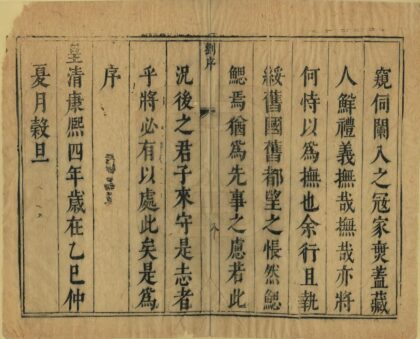 窺伺闌入之冦家炎蓋藏
人鮮禮義撫哉撫哉亦將
何恃以為撫也余行且執
綏舊國舊都望之悵然鰓
鰓焉猶為先事之慮若此
劉序
況後之君子來守是志者
乎將必有以處此矣是為
序
皇清康熈四年歲在乙巳仲
夏月榖旦